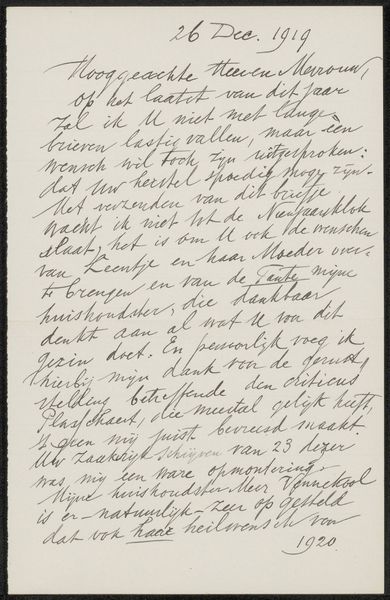 26 Dec. 1919
Hooggeachte Heer en Mevrouw,
op het laatst van dit jaar
zal ik U niet met lange
brieven lastig vallen, maar één
wensch wil toch zijn uitgesproken:
dat Uw herstel spoedig moge zijn.
Met verzenden van dit briefje
wacht ik niet tot de Nieuwjaarsklok
slaat, het is om U ook de wenschen
van Leentje en haar Moeder over
te brengen en van de Tante, mijne
huishoudster, die dankbaar
denkt aan al wat U voor dit
gezin doet. En persoonlijk voeg ik
hierbij mijn dank voor de gerust-
stellens betreffende den criticus
Plasschaert, die meestal gelijk heeft,
geen mij juist bevreesd maakt.
Uw zaakrijk schrijven van 23 dezer
was mij een ware opmontering.
Mijne huishoudster Mevr Vennekool
is er - natuurlijk - zeer op gesteld
dat ook hare heilwensch voor
1920